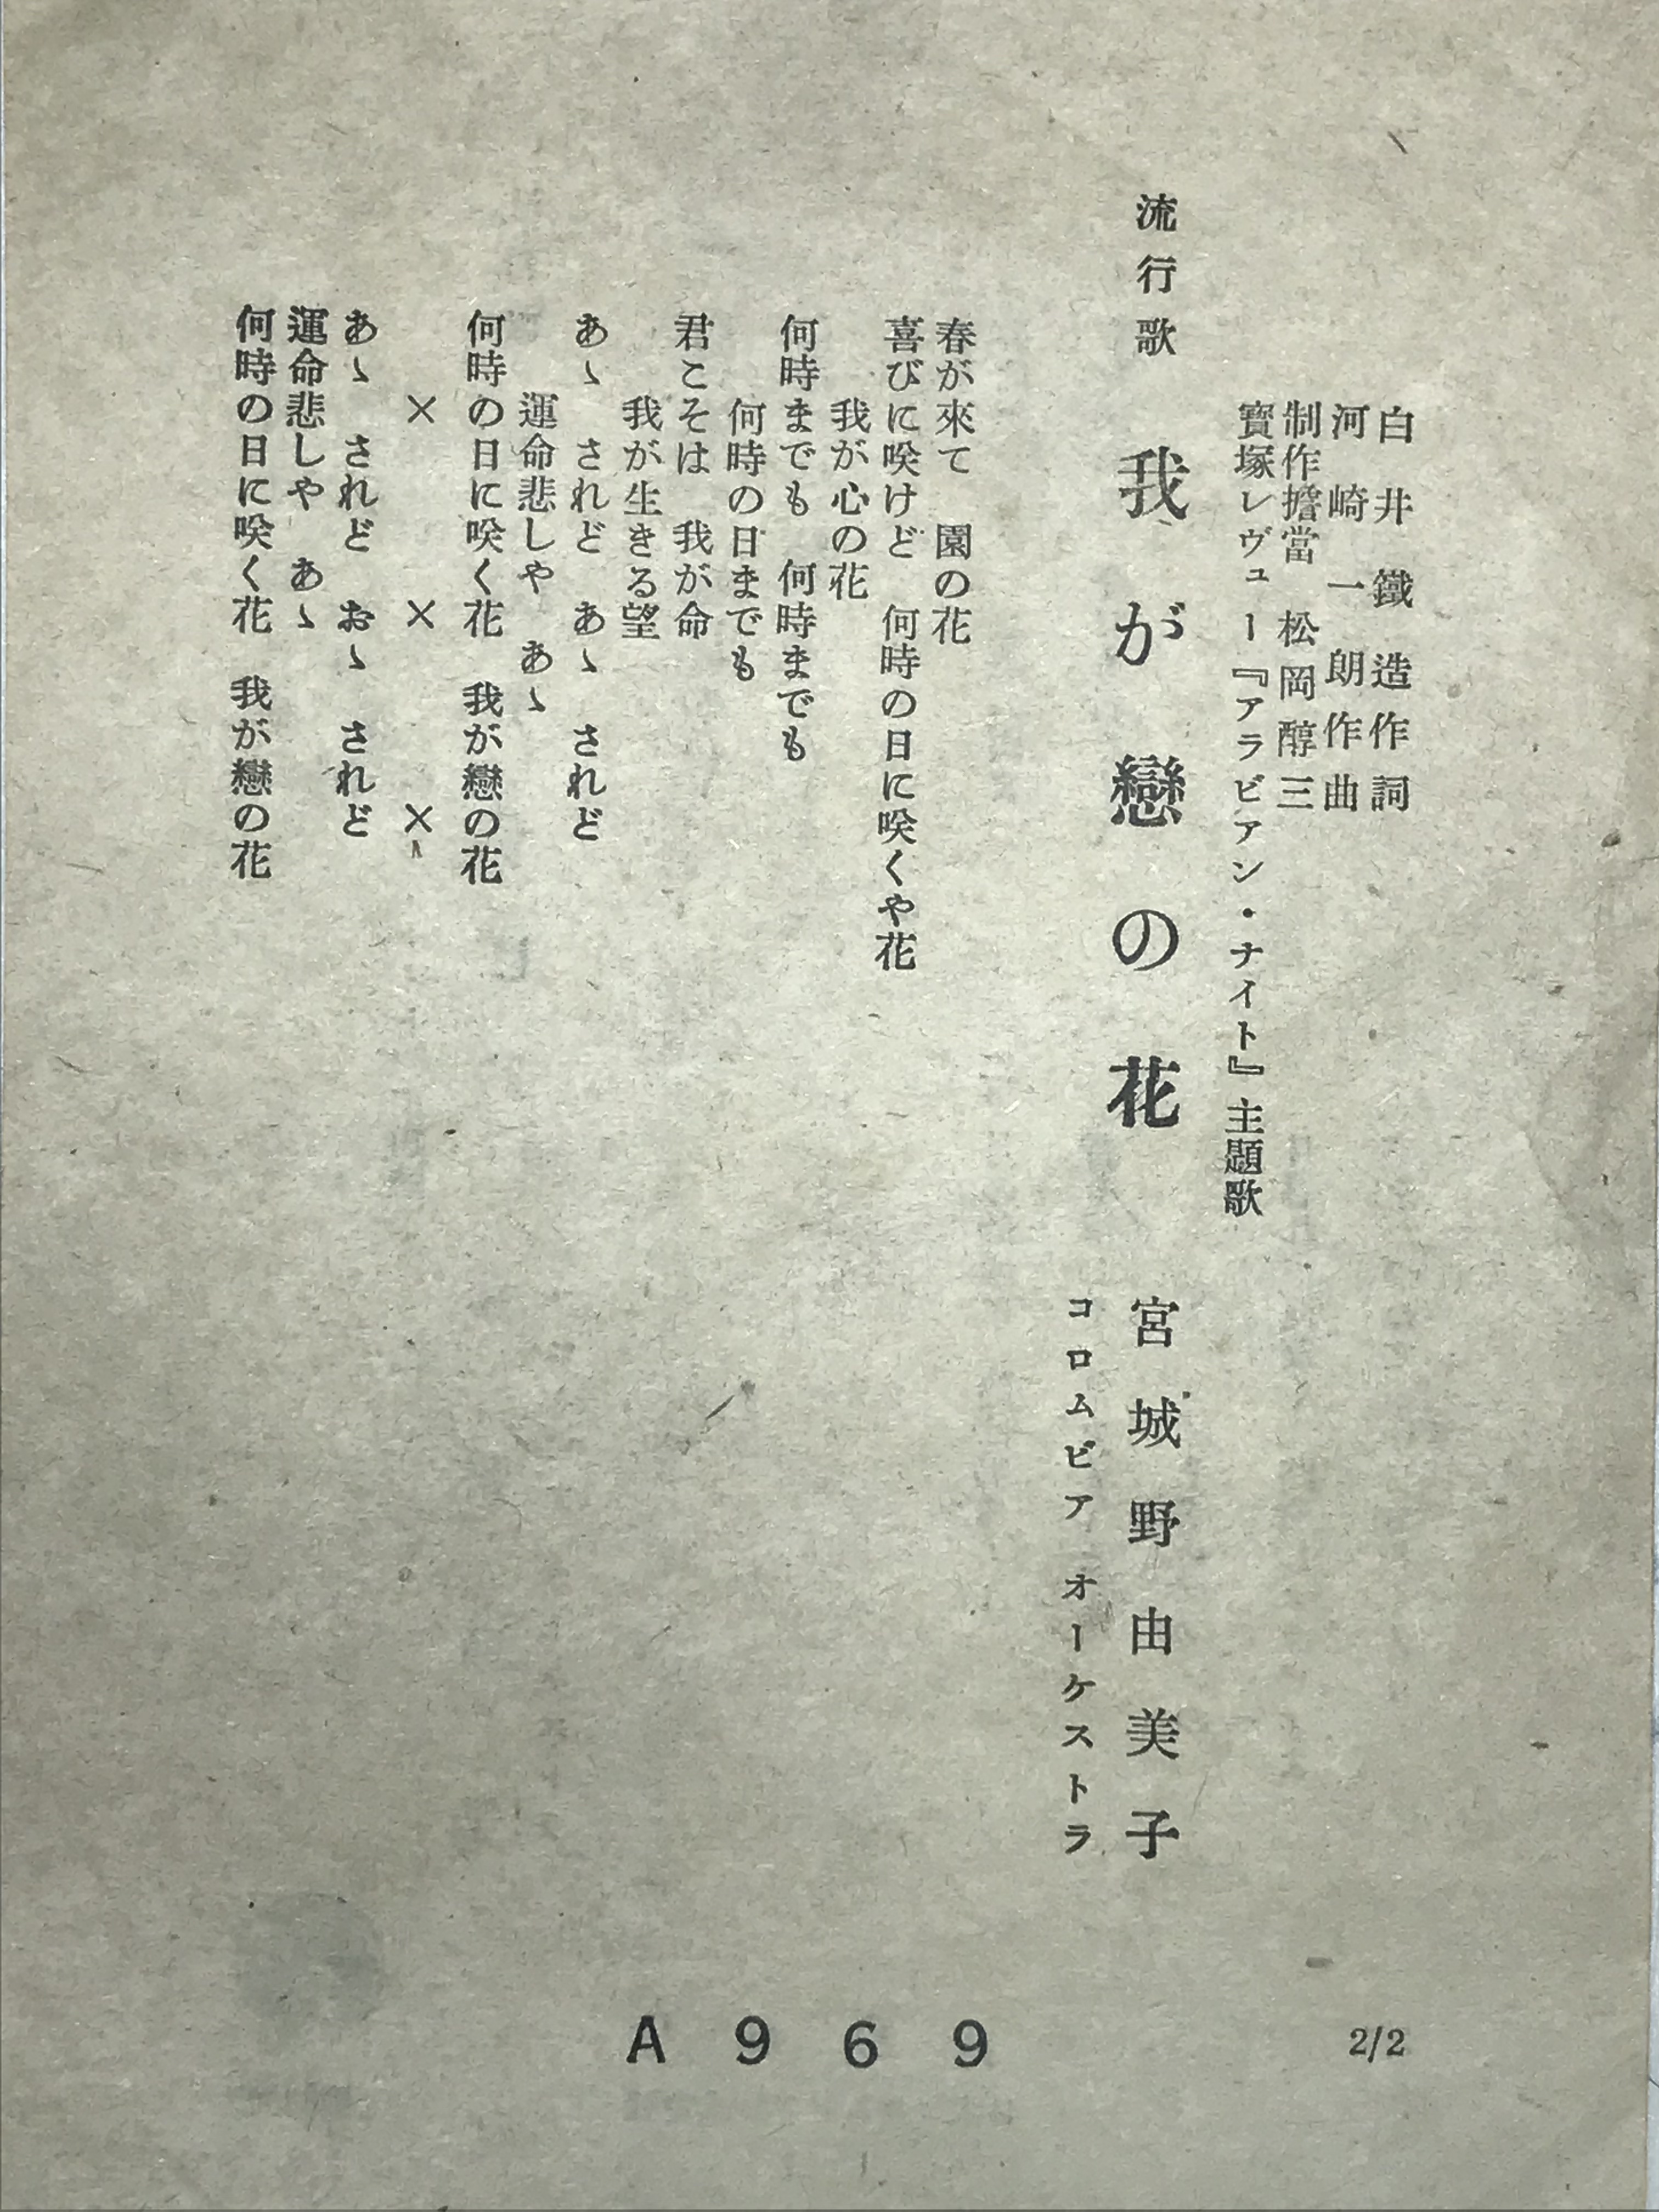 白井鐵造作詞
河崎一朗作曲
制作擔當　松岡醇三
寶塚レヴュー『アラビアン・ナイト』主題歌
流行歌　我が戀の花　宮城野由美子
コロムビア　オーケストラ
春が來て　園の花
喜びに咲けど　何時の日に咲くや花
我が心の花
何時までも　何時までも
何時の日までも
君こそは　我が命
我が生きる望
あゝ　されど　あゝ　されど
運命悲しや　あゝ
何時の日に咲く花　我が戀の花
×　×　×
あゝ　されど　おゝ　されど
運命悲しや　あゝ
何時の日に咲く花　我が戀の花
A969
2/2